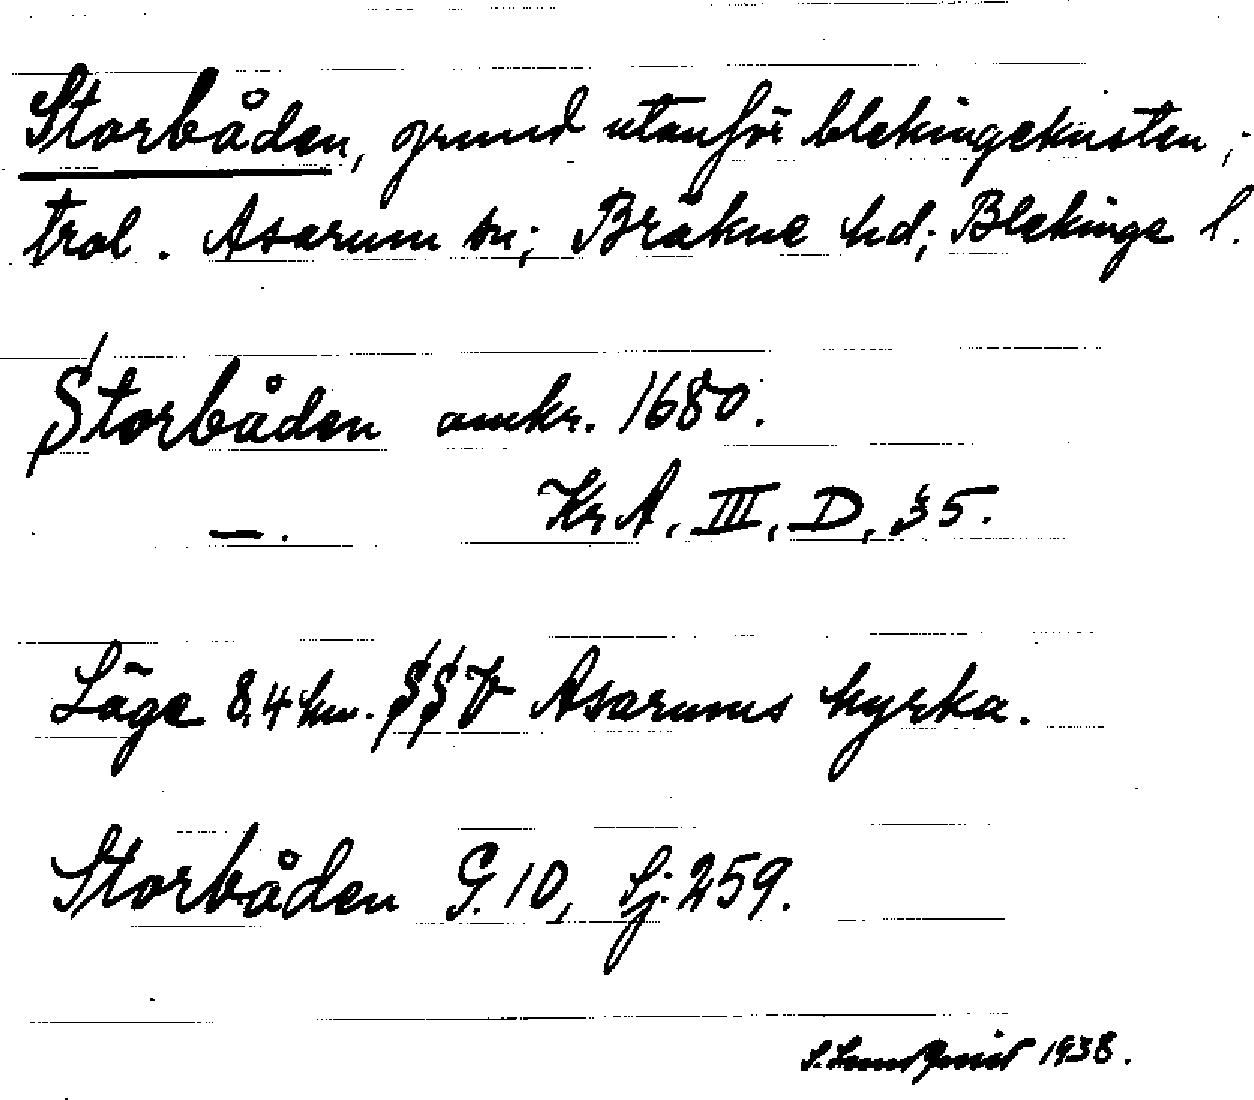 Storbåden, grund utanför blekingekusten;
trol. Asarum sn; Bräkne hd; Blekinge l.
Storbåden omkr. 1680.
—. KrA, III, D, 35.
Läge 8,4 km. SSV Asarums kyrka.
Storbåden G. 10, Sj. 259.
1938.